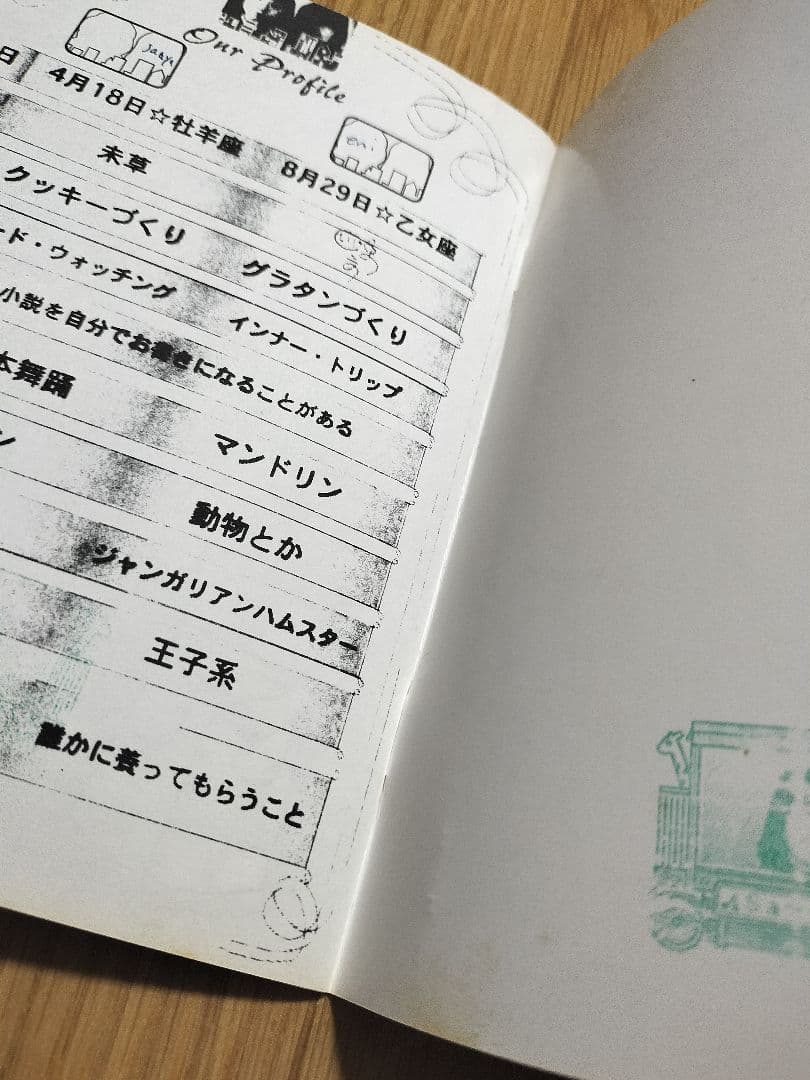 Our Profile
日 4月18日☆牡羊座 8月29日☆乙女座
未草
クッキーづくり グラタンづくり
ード・ウォッチング インナー・トリップ
小説を自分でお書きになることがある
本舞踊 マンドリン
ン 動物とか
ジャンガリアンハムスター
王子系
誰かに養ってもらうこと